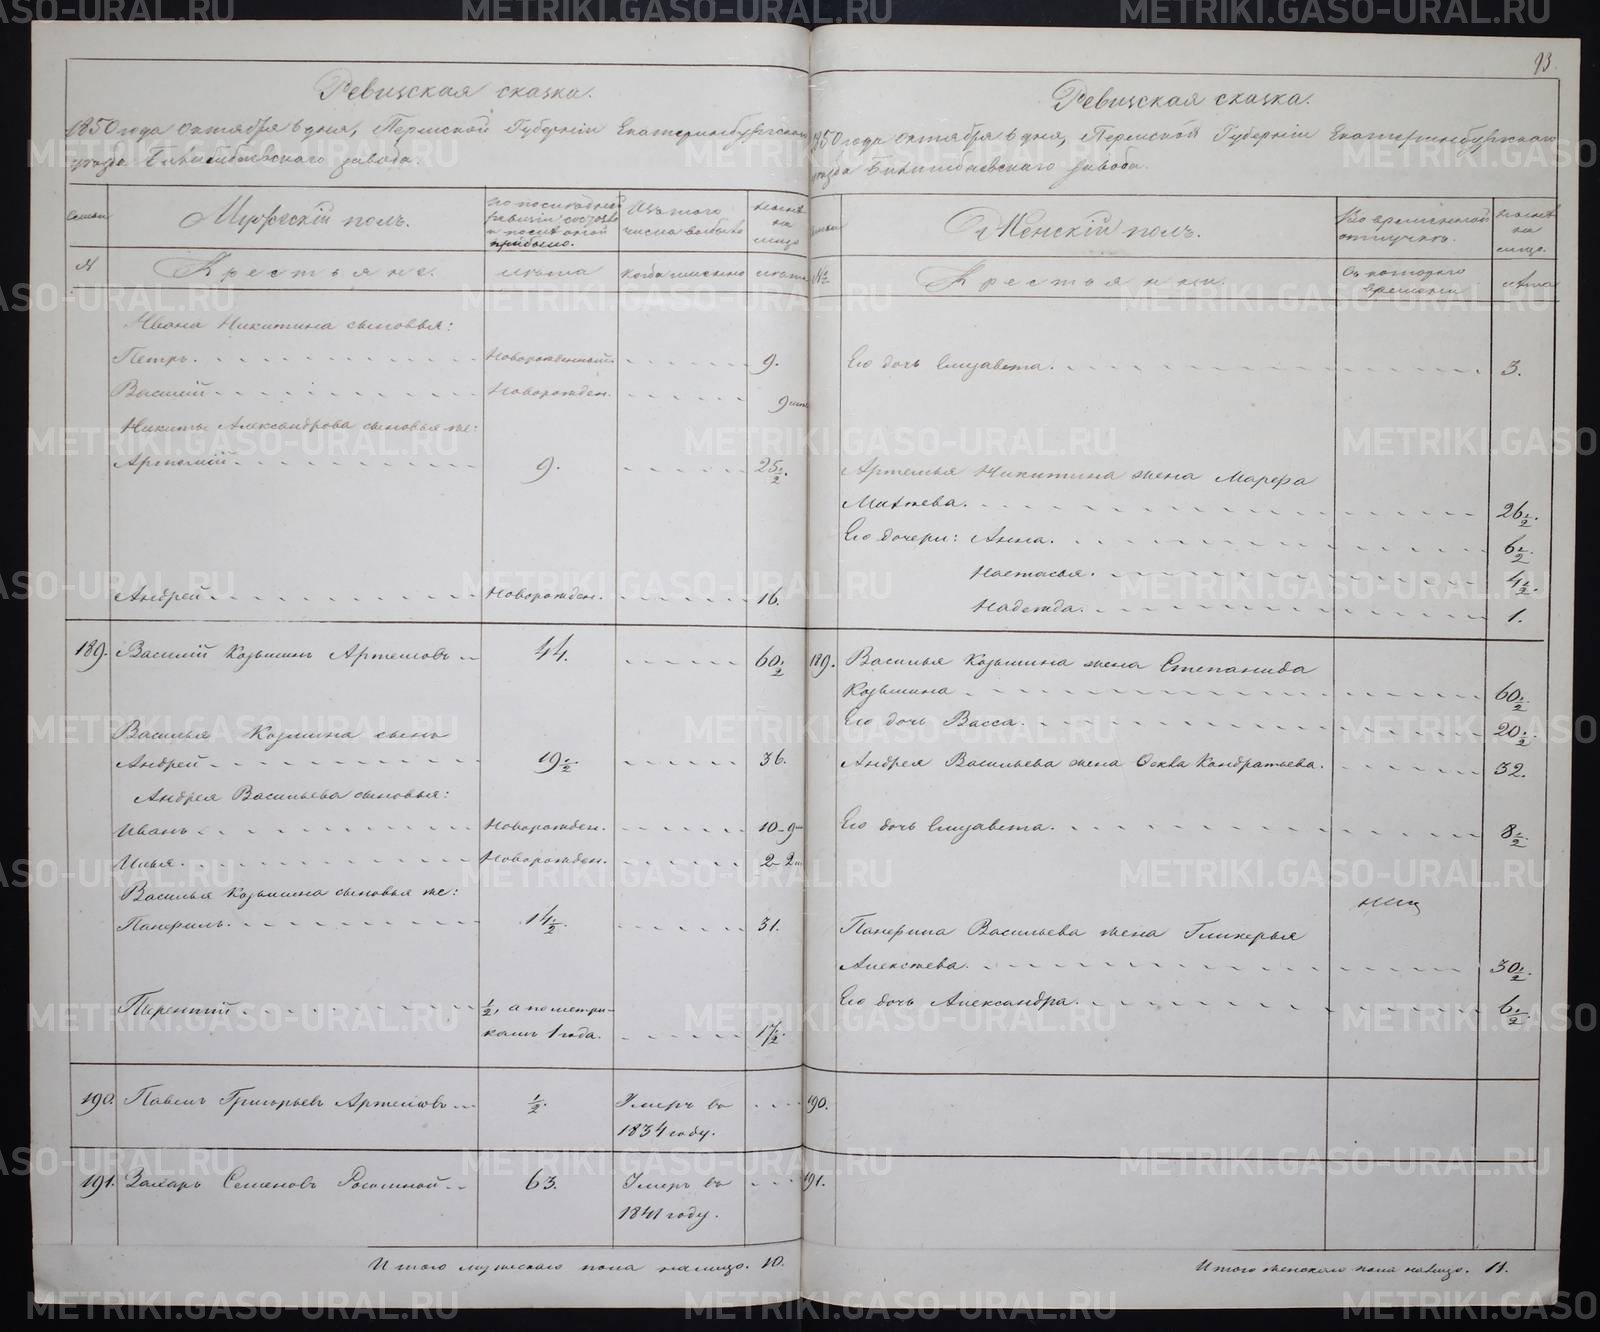 93.
Ревизская сказка.
1850 года октября 6 дня, Пермской Губернии Екатеринбургскаго
уезда Билимбаевского завода.
Семьи
Мужеский полъ.
По последней
ревизии состояло
и после оной
прибыло.
Изъ того
числа выбыло
Ныне
на
лицо
№
Крестьяне.
лета
когда именно
лета
Ивана Никитина сыновья:
Петръ. Новорожденный. 9.
Василий Новорожден. 9 мес.
Никиты Александрова сыновья же:
Артемий 9. 25 1/2.
Андрей Новорожден. 16.
189. Василий Козьминъ Артемовъ 44. 60 1/2
Василья Козмина сынъ
Андрей 19 1/2 36.
Андрея Васильева сыновья:
Иванъ Новорожден. 10-9 м
Илья. Новорожден. 2-2 м
Василья Козьмина сыновья же:
Панфилъ. 14 1/2. 31.
Терентий 1/2, а по метри-
камъ 1 года. 17 1/2.
190. Павелъ Григорьевъ Артемовъ 1/2. Умеръ въ
1834 году.
191. Захаръ Семеновъ 63. Умеръ въ
1841 году.
Итого мужескаго пола налицо. 10.
Ревизская сказка.
1850 года октября 6 дня, Пермской Губернии Екатеринбургскаго
уезда Билимбаевского завода.
Семьи
Женский полъ.
Во временной
отлучке.
Ныне
на
лицо.
№
Крестьянки.
Съ котораго
времени
лета
Его дочь Елизавета. 3.
Артемья Никитина жена Марфа
Матвева. 26 1/2.
Его дочери: Анна. 6 1/2.
Настасья. 4 1/2.
Надежда. 1.
189. Василья Козьмина жена Степанида
Козьмина 60 1/2.
Его дочь Васса. 20 1/2.
Андрея Васильева жена Фекла Кондратьева. 32.
Его дочь Елизавета. 8 1/2.
Панфила Васильева жена Гликерья
Алексеева. 30 1/2.
Его дочь Александра. 6 1/2.
190.
191.
Итого женскаго пола налицо. 11.
METRIKI.GASO-URAL.RU